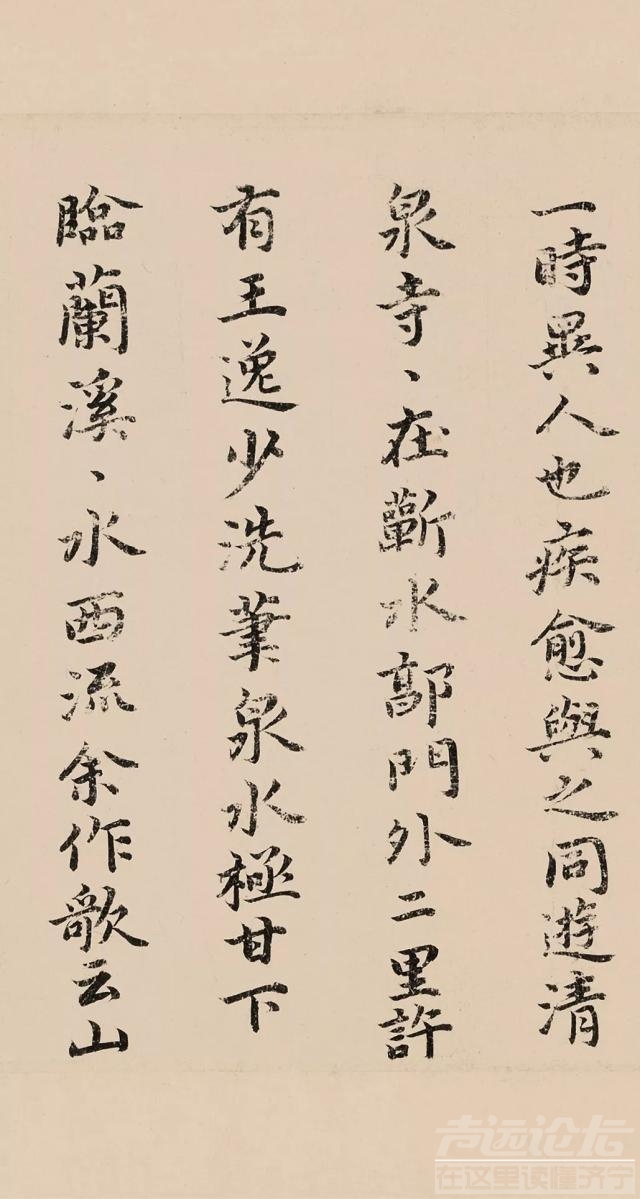 一時異人也疾愈與之同遊清
泉寺、在蘄水郭門外二里許
有王逸少洗筆泉水極甘下
臨蘭溪、水西流余作歌云山
声远论坛
在这里读懂济宁